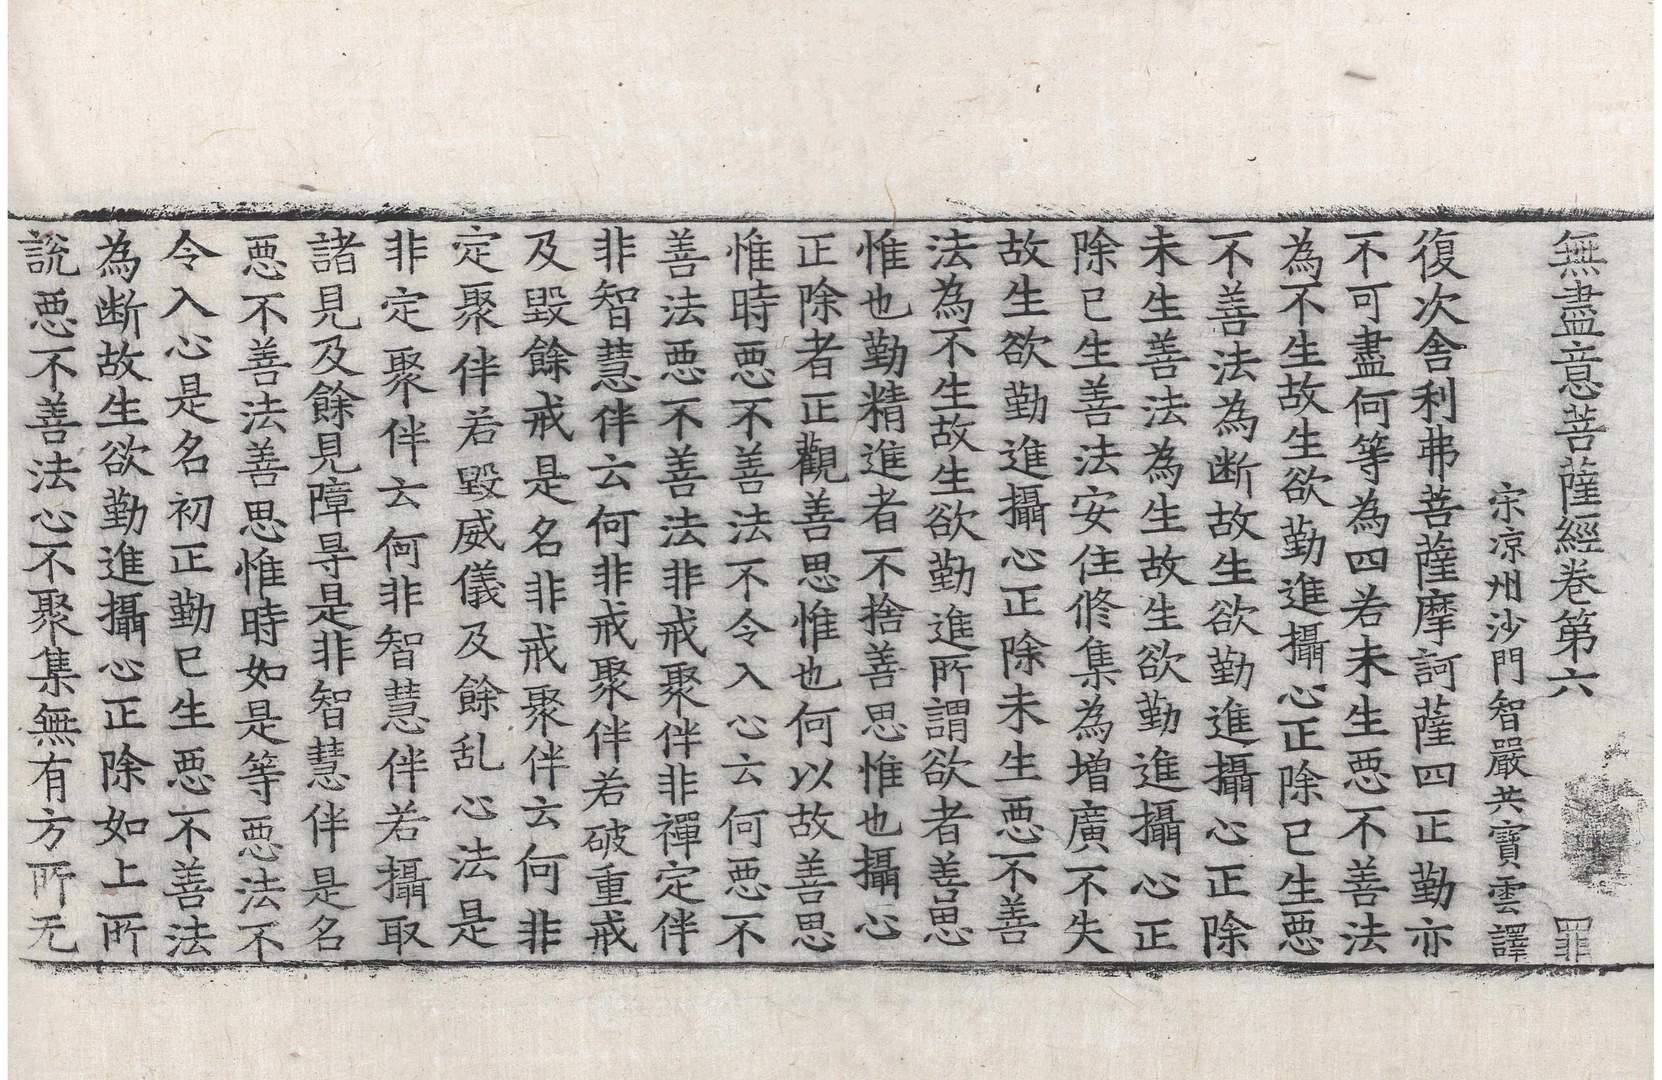 無盡意菩薩經卷第六 罪
宋涼州沙門智嚴共寶雲譯
復次舍利弗菩薩摩訶薩四正勤亦
不可盡何等為四若未生惡不善法
為不生故生欲勤進攝心正除已生惡
不善法為断故生欲勤進攝心正除
未生善法為生故生欲勤進攝心正
除已生善法安住修集為增廣不失
故生欲勤進攝心正除未生惡不善
法為不生故生欲勤進所謂欲者善思
惟也勤精進者不捨善思惟也攝心
正除者正觀善思惟也何以故善思
惟時惡不善法不令入心云何惡不
善法惡不善法非戒聚伴非禪定伴
非智慧伴云何非戒聚伴若破重戒
及毀餘戒是名非戒聚伴云何非
定聚伴若毀威儀及餘乱心法是
非定聚伴云何非智慧伴若攝取
諸見及餘見障㝵是非智慧伴是名
惡不善法善思惟時如是等惡法不
令入心是名初正勤已生惡不善法
為断故生欲勤進攝心正除如上所
說惡不善法心不聚集無有方所无